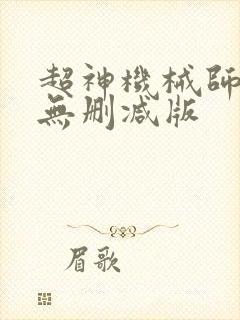 超神機械師
無删减版
眉歌